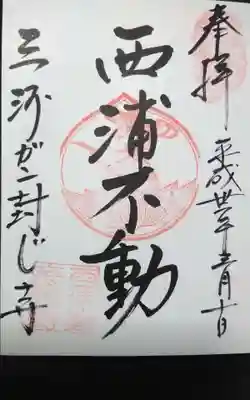 奉拝
平成卅年十二月十日
西浦不動
三河ガン封じ寺